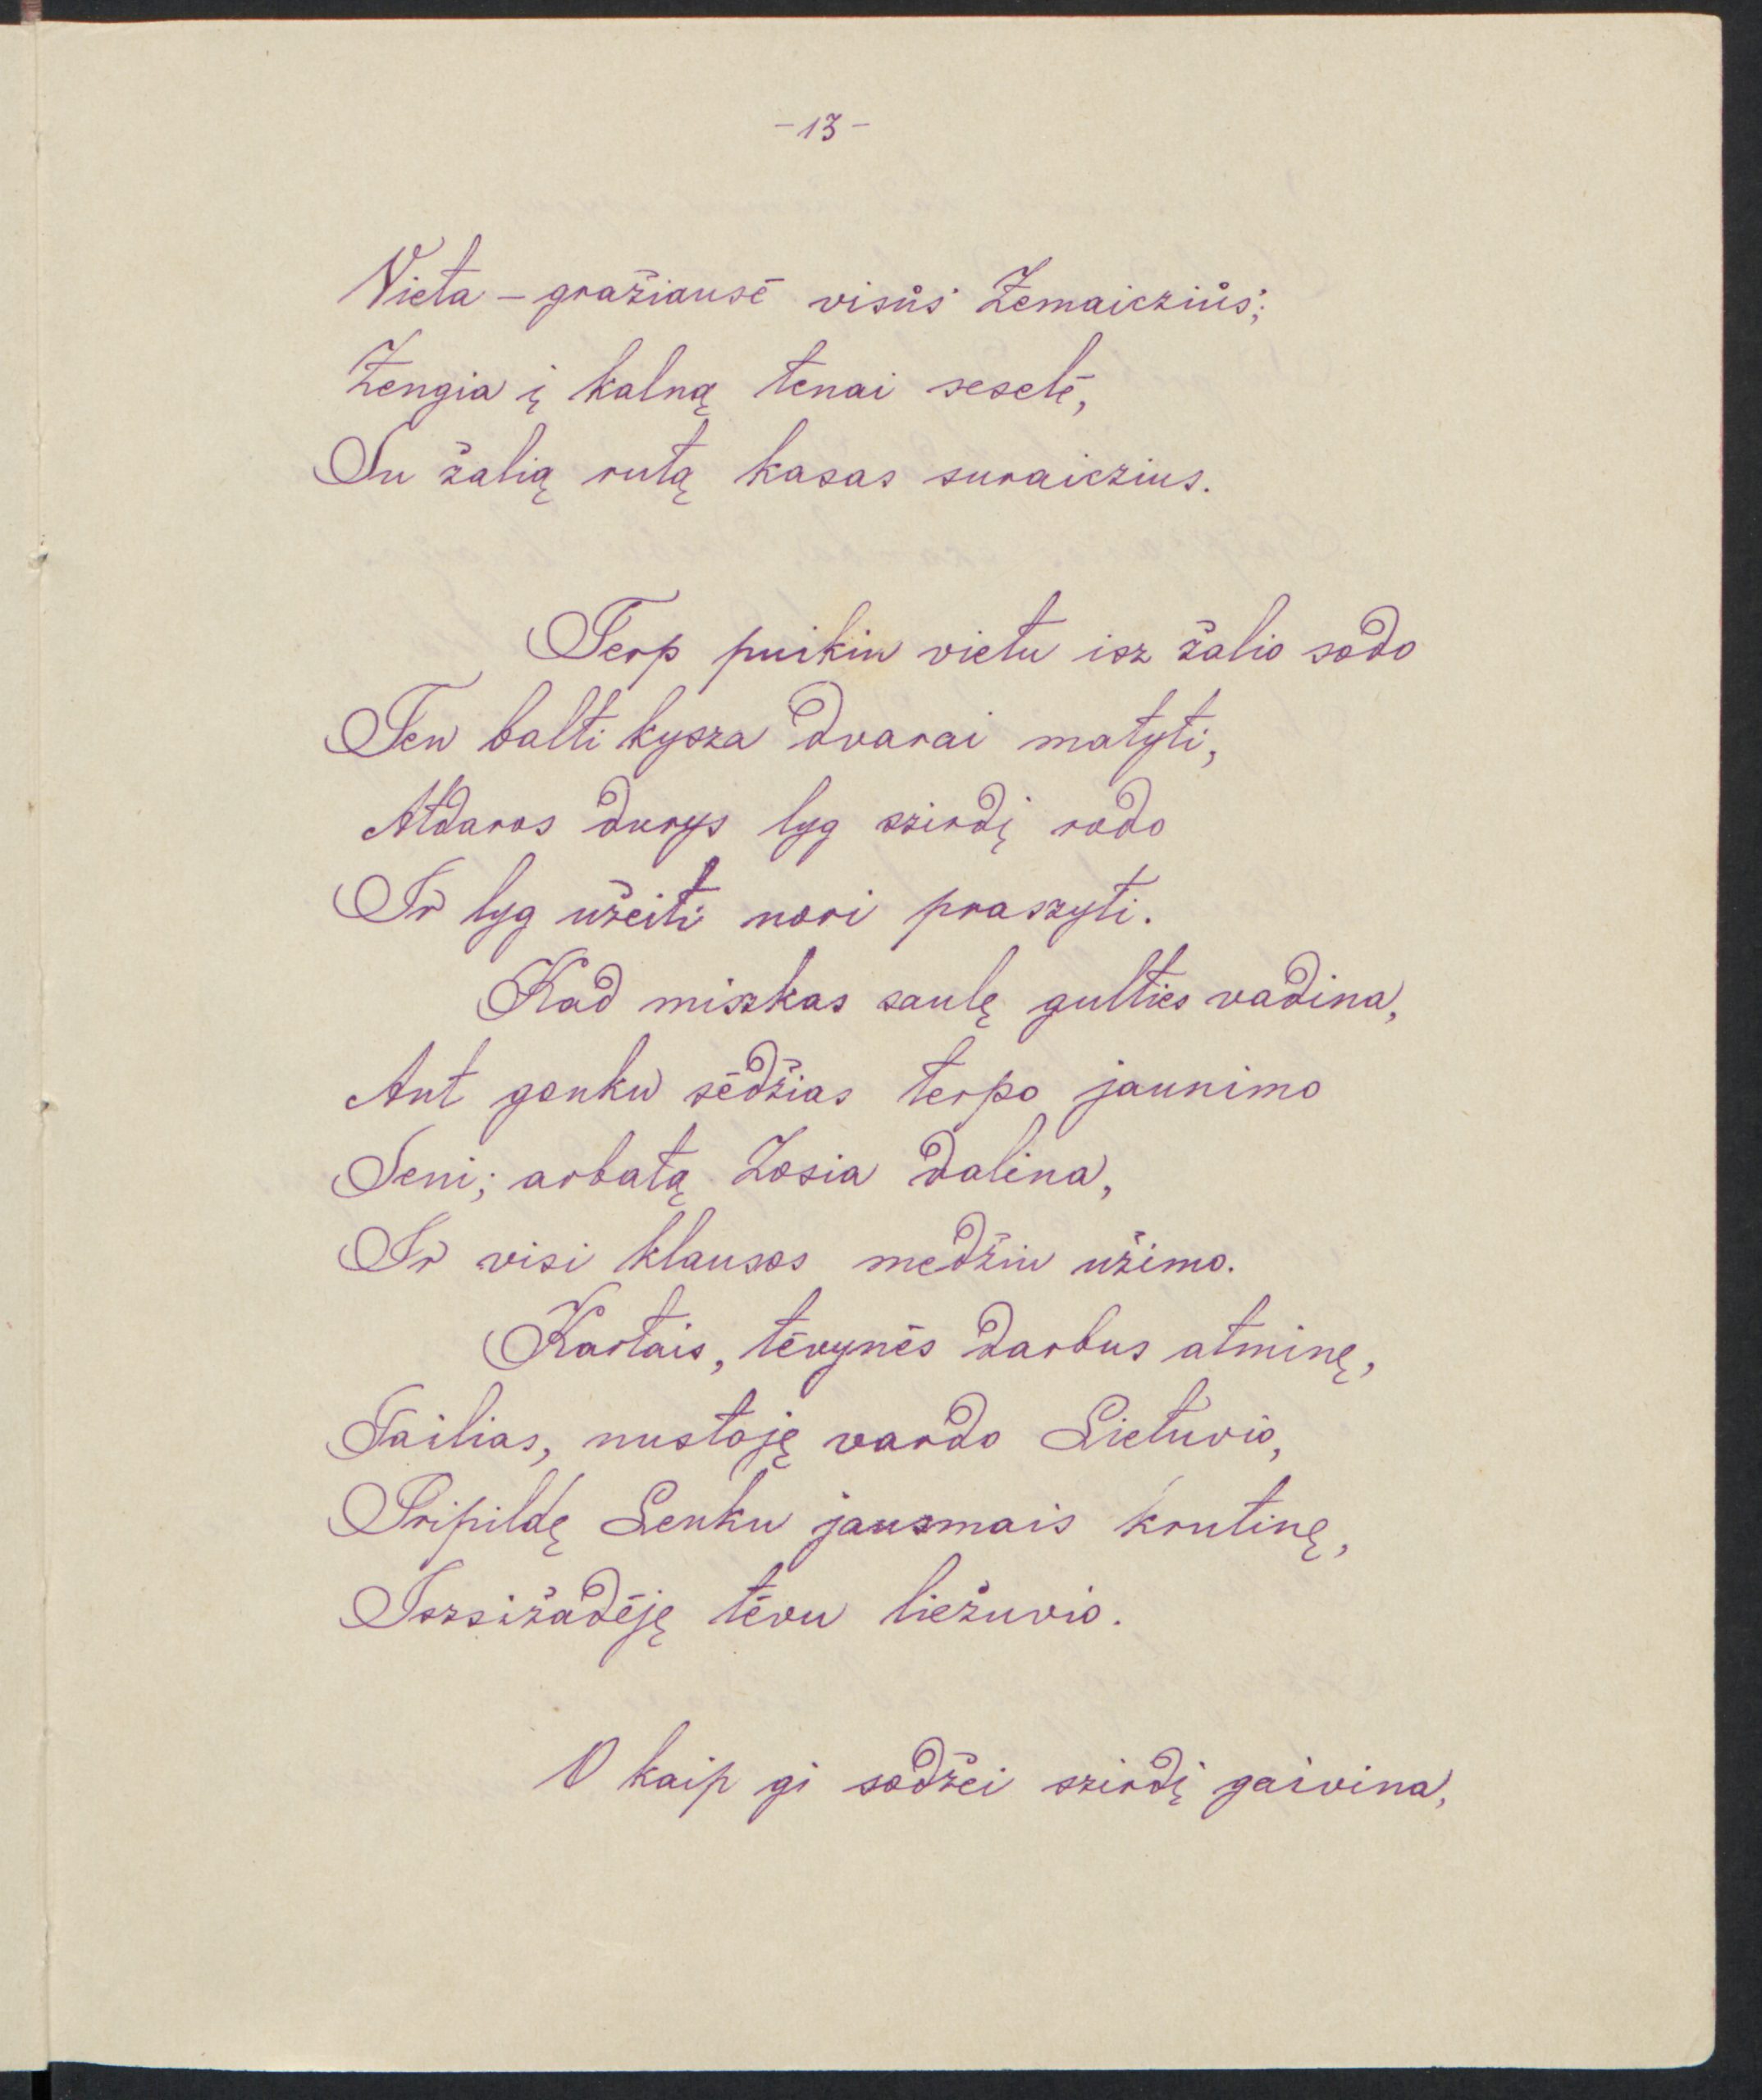 - 13 -
Vieta – gražiausė visůs Žemaiczius;
Žengia į kalną tenai seselė,
Su žalią rutą kasas suraiczius.
Terp puikiu vietu isz žalio sodo
Ten balti kysza dvarai matyti,
Atdaros durys lyg szirdį rodo
Ir lyg užeiti nori praszyti.
Kad miszkas saulę gulties vadina,
Ant gonku sėdžias terpo jaunimo
Seni; arbatą Zosia dalina,
Ir visi klausos medžiu užimo.
Kartais, tėvynės darbus atminę,
Tailias, nustoję vardo Lietuvio,
Pripildę Lenku jausmais krutinę,
Iszsižadėję tėvu liežuvio.
O kaip gi sodžei szirdį gaivina,